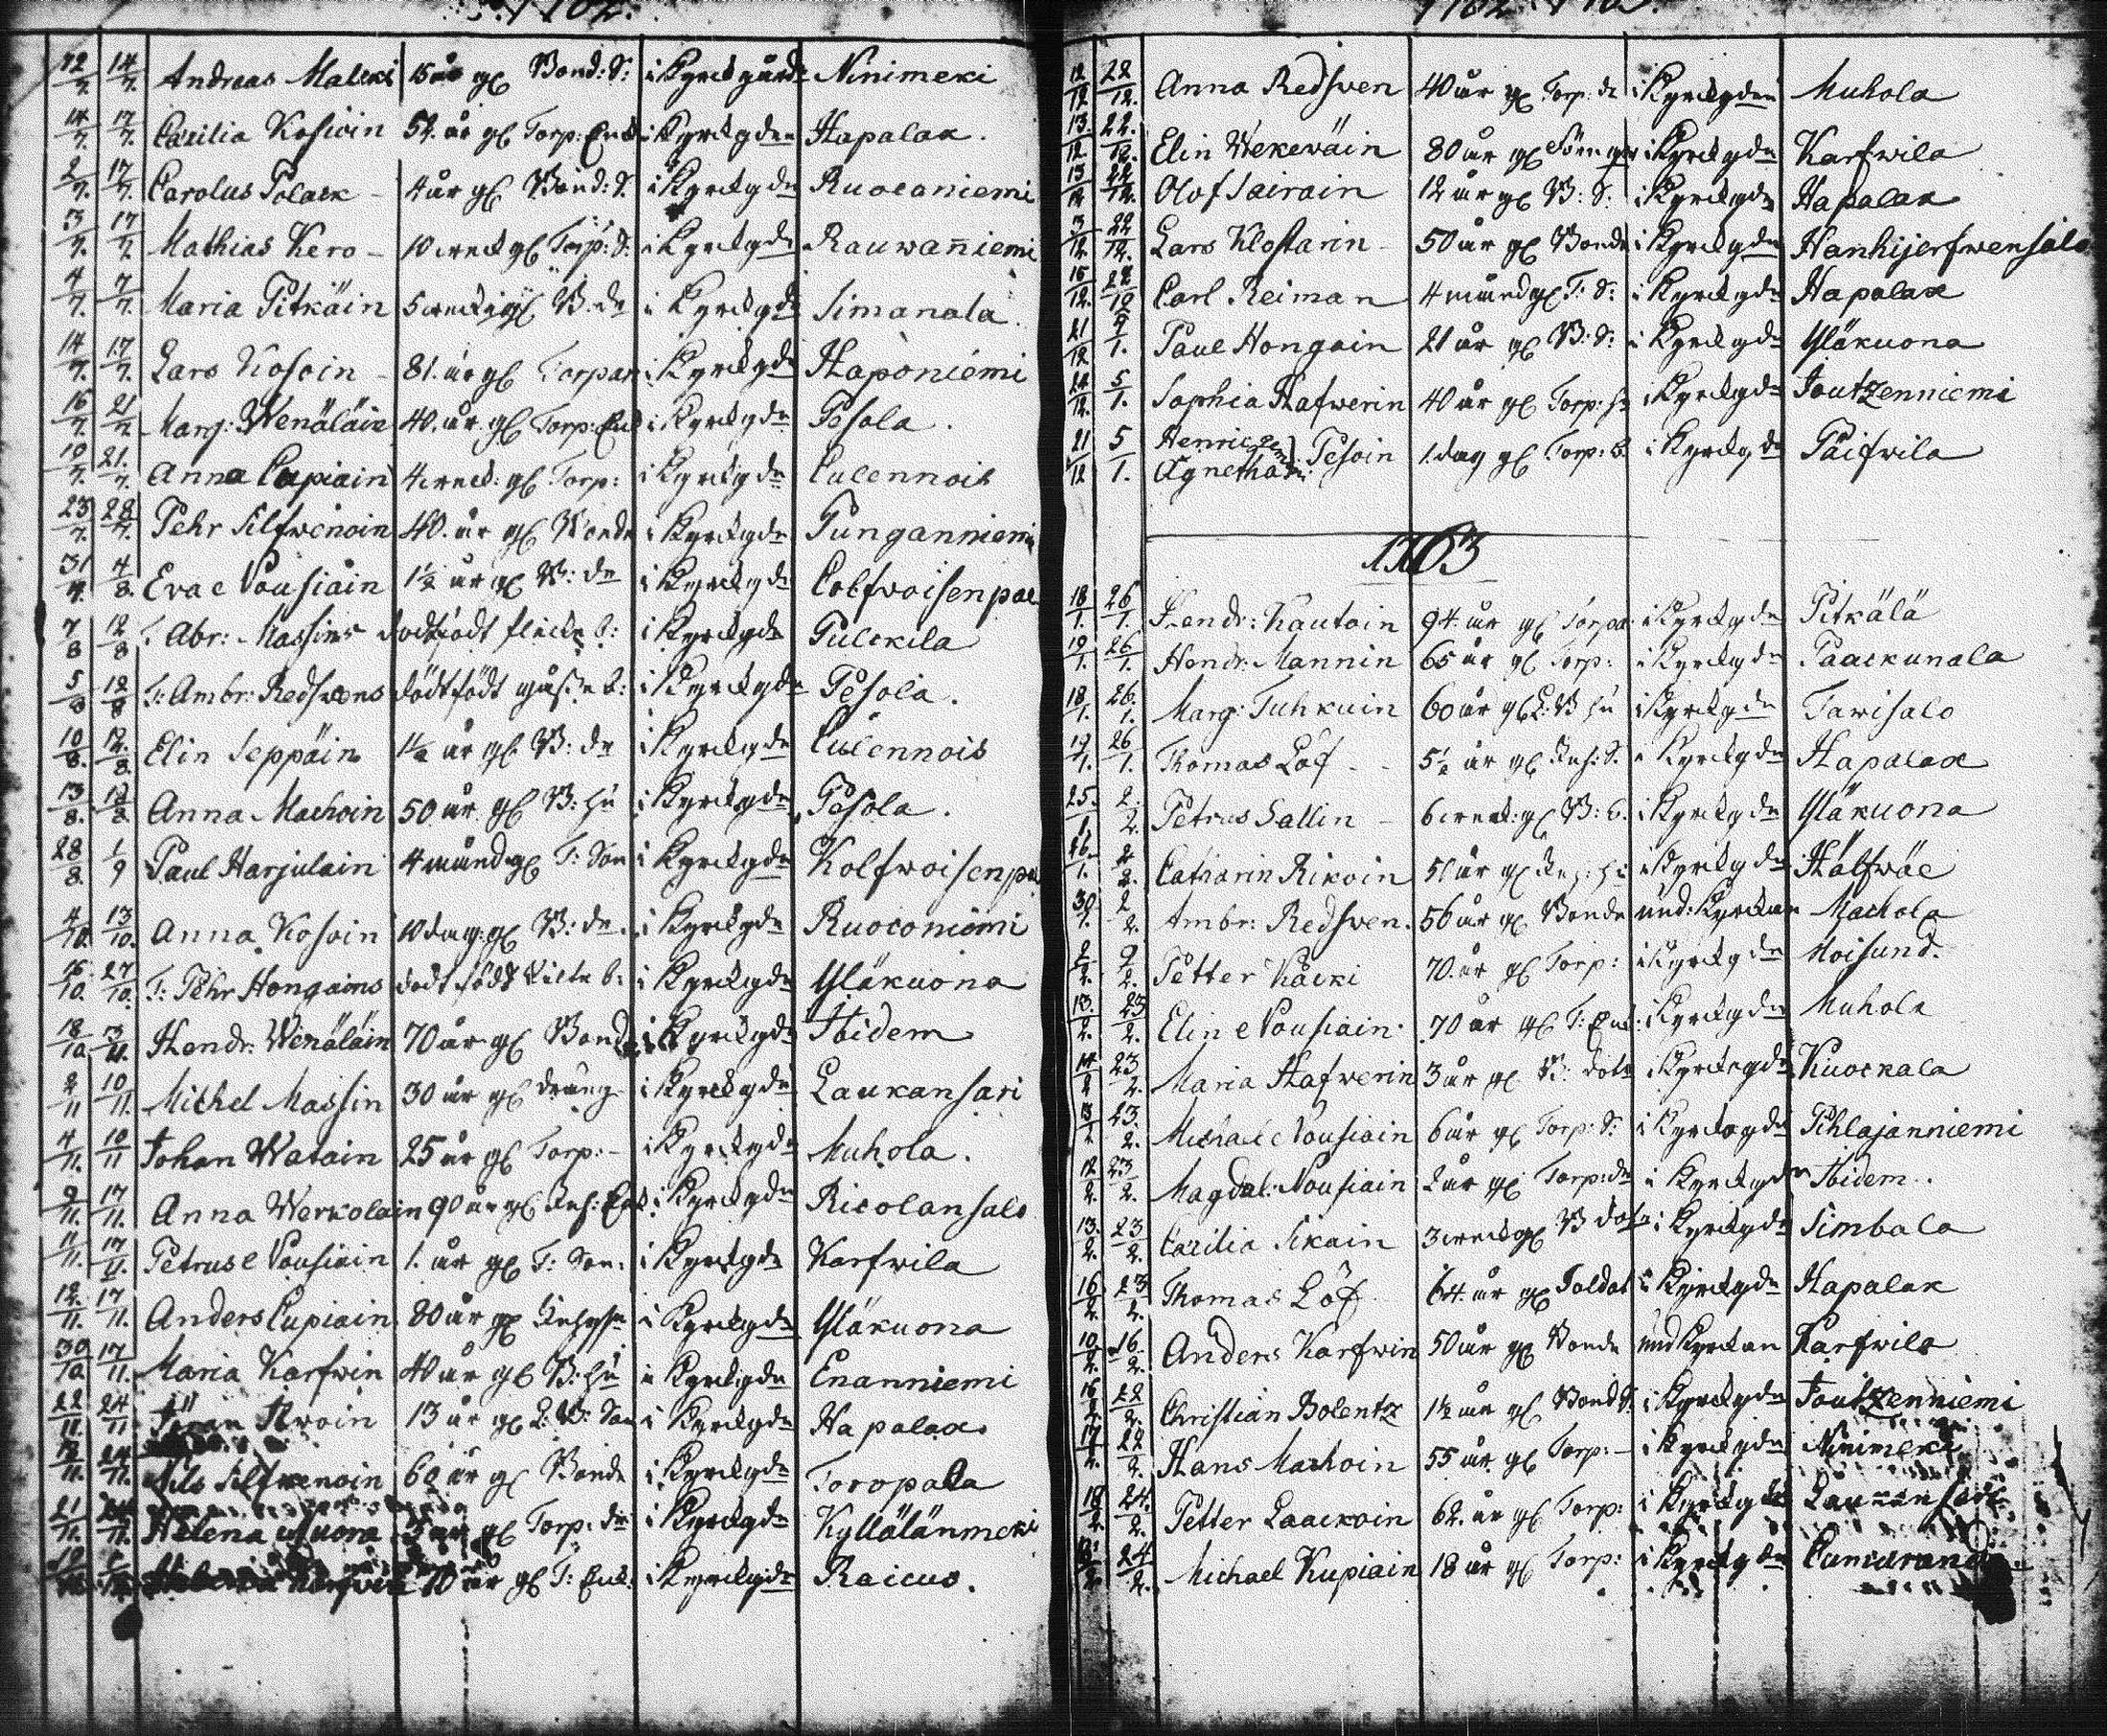 1762.
12/7. 14/7. Andreas Malcki 15 år gl Bond: S: i Kyrckgård: Ninimeki
14/7. 17/7. Cæcilia Kosoin 52. år gl Torp: Enk i Kyrckgdn Hapalax.
2/7. 17/7. Carolus Polack – 4 år gl Bond: S. i Kyrckgdn Ruoconiemi
3/7. 17/7. Mathias Kero – 10 weck gl Torp: S: i Kyrckgdn Rauwanniemi
4/7. 7/7. Maria Pitkäin 5 weck gl B: dr i Kyrckgdn Simanala.
14/7. 17/7. Lars Kosoin – 81. år gl Torpar i Kyrckgdn Haponiemi
16/7. 21/7. Marg: Wenäläin 40. år gl Torp: Enk i Kyrckgdn Pesola.
19/7. 21./7. Anna Cupiain 4 weck. gl Torp: i Kyrckgdn Culennois
23/7. 28/7. Pehr Silfwenoin 40. år gl Bonde i Kyrckgdn Punganniemi
31/7. 4/8. Eva Nousiain 1½ år gl B: dr i Kyrckgdn Colfwoisenpæ
7/8 12/8 T: Abr: Massins dödfödt flicke b: i Kyrckgdn Pulckila
5/8 12/8 T: Ambr: Redswens dödtfödt gåsse b: i Kyrckgdn Pesola.
10/8. 12./8. Elin Seppäin 1½ år gl B: dr i Kyrckgdn Culennois
13/8. 12/8 Anna Machoin 50 år gl B: hu i Kyrckgdn Pesola.
28/8. 1/9 Paul Harjulain 4 månd gl T: Son i Kyrckgdn Kolfwoisenpæ
4/10. 13/10. Anna Kosoin 10 dag: gl B: dr. i Kyrckgdn Ruoconiemi
16/10. 27/10. T: Pehr Hongains dödt födt Pilte b: i Kyrckgdn Yläkuona
18/10. 3/11. Hendr: Wenäläin 70 år gl Bonde i Kyrckgdn Ibidem
2/11 10/11. Michel Massin 30 år gl dräng i Kyrckgdn Laukansari
4/11. 10/11 Johan Watain 25 år gl Torp: – i Kyrckgdn Muhola.
9/11. 17/11. Anna Werkolain 90 år gl Inh: Enk: i Kyrckgdn Ricolansalo
11/11. 17/11. Petrus Nousiain 1. år gl T: Son: i Kyrckgdn Karfwila
12./11. 17/11. Anders Cupiain 80 år gl Inhyse i Kyrckgdn Yläkuona
30/10 17/11. Maria Karfwin 40 år gl B: hu i Kyrckgdn Enanniemi
22/11. 24/11 Joran Awoin 13 år gl L: B: Son i Kyrckgdn Hapalax
12/11. 24/11. Nils Silfwenoin 60 år gl Bonde i Kyrckgdn Toropala
21/11. 24/11. Helena Muona år gl Torp: dr i Kyrckgdn Kyllälänmeki
70 år gl T: Enk: i Kyrckgdn Raicus.
1762
12/12 22/12. Anna Redswen 40 år gl Torp: dr i Kyrckgdn Muhola
13./12 22./12. Elin Wekewäin 80 år gl i Kyrckgdn Karfwila
13/12 22/12. Olof Sairain 12 år gl B: S: i Kyrckgdn Hapalax
3/12 22/12. Lars Klostarin – 50 år gl Bonde i Kyrckgdn Hanhijerfwensalo
15/12. 22/12 Carl Reiman 4 månd gl T: S: i Kyrckgdn Hapalax
21/12 /1. Paul Hongain 21 år gl B: S: i Kyrckgdn Yläkuona
24/12. 5/1. Sophia Hafwerin 40 år gl Torp: hu i Kyrckgdn Joutzenniemi
21/12 5/1. Henric
Agnetha Pesoin 1. dag gl Torp: b: i Kyrckgdn Päifwila
1763
18/1. 26/1. Hendr: Kautoin 94 år gl Torpar i Kyrckgdn Pitkälä
19/1. 26/1. Hendr: Mannin 65 år gl Torp: i Kyrckgdn Paackunala
18/1. 26./1. Marg: Tuhkuin 60 år gl L: B hu i Kyrckgdn Tawisalo
19/1. 26/1. Thomas Löf – 5½ år gl Inh: S. i Kyrckgdn Hapalax
25./1. 2./2. Petrus Sallin – 6 weck: gl B: b. i Kyrckgdn Yläkuona
26/1. 2/2. Catharin Rikoin 50 år gl Inh: hu i Kyrckgdn Hälfwäe
30/1. 2/2. Ambr: Redswen. 56 år gl Bonde und: Kyrckan Machola
2/2. 9/2. Petter Käcki 70. år gl Torp: i Kyrckgdn Moisund.
13./2. 23/2. Elin Nousiain. 70 år gl T: Enk: i Kyrckgdn Muhola
14/2 23/2. Maria Hafwerin 3 år gl B: dotr i Kyrckgdn Kuockala
13/2 23./2. Michael Nousiain 6 år gl Torp: S: i Kyrckgdn Pihlajanniemi
12/2. 23/2. Magdal: Nousiain 2 år gl Torp: dr i Kyrckgdn Ibidem.
13./2. 23/2. Cæcilia Sikain 3 weck gl B dotr i Kyrckgdn Simbala
16/2. 23/2. Thomas Löf 64. år gl Soldat i Kyrckgdn Hapalax
10/2. 16./2. Anders Karfwin 50 år gl Bonde und Kyrckan Karfwila
16/2. 22/2. Christian Bolentz 1½ år gl Bond S: i Kyrckgdn Joutzenniemi
17/2. 22/2. Hans Machoin 55 år gl Torp: – i Kyrckgdn Ninimeki
18/2. 24./2. Petter Laackoin 62. år gl Torp: i Kyrckgdn
24/2. Michael Kupiain 18 år gl Torp: i Kyrckgdn